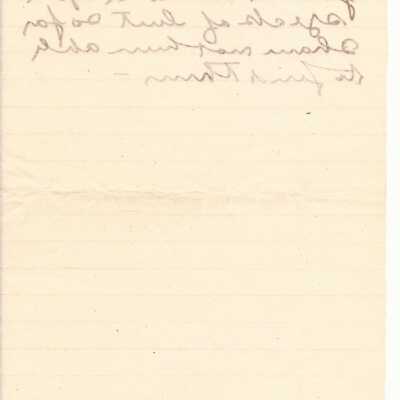 speak of but so far
I have not been able
to find them –